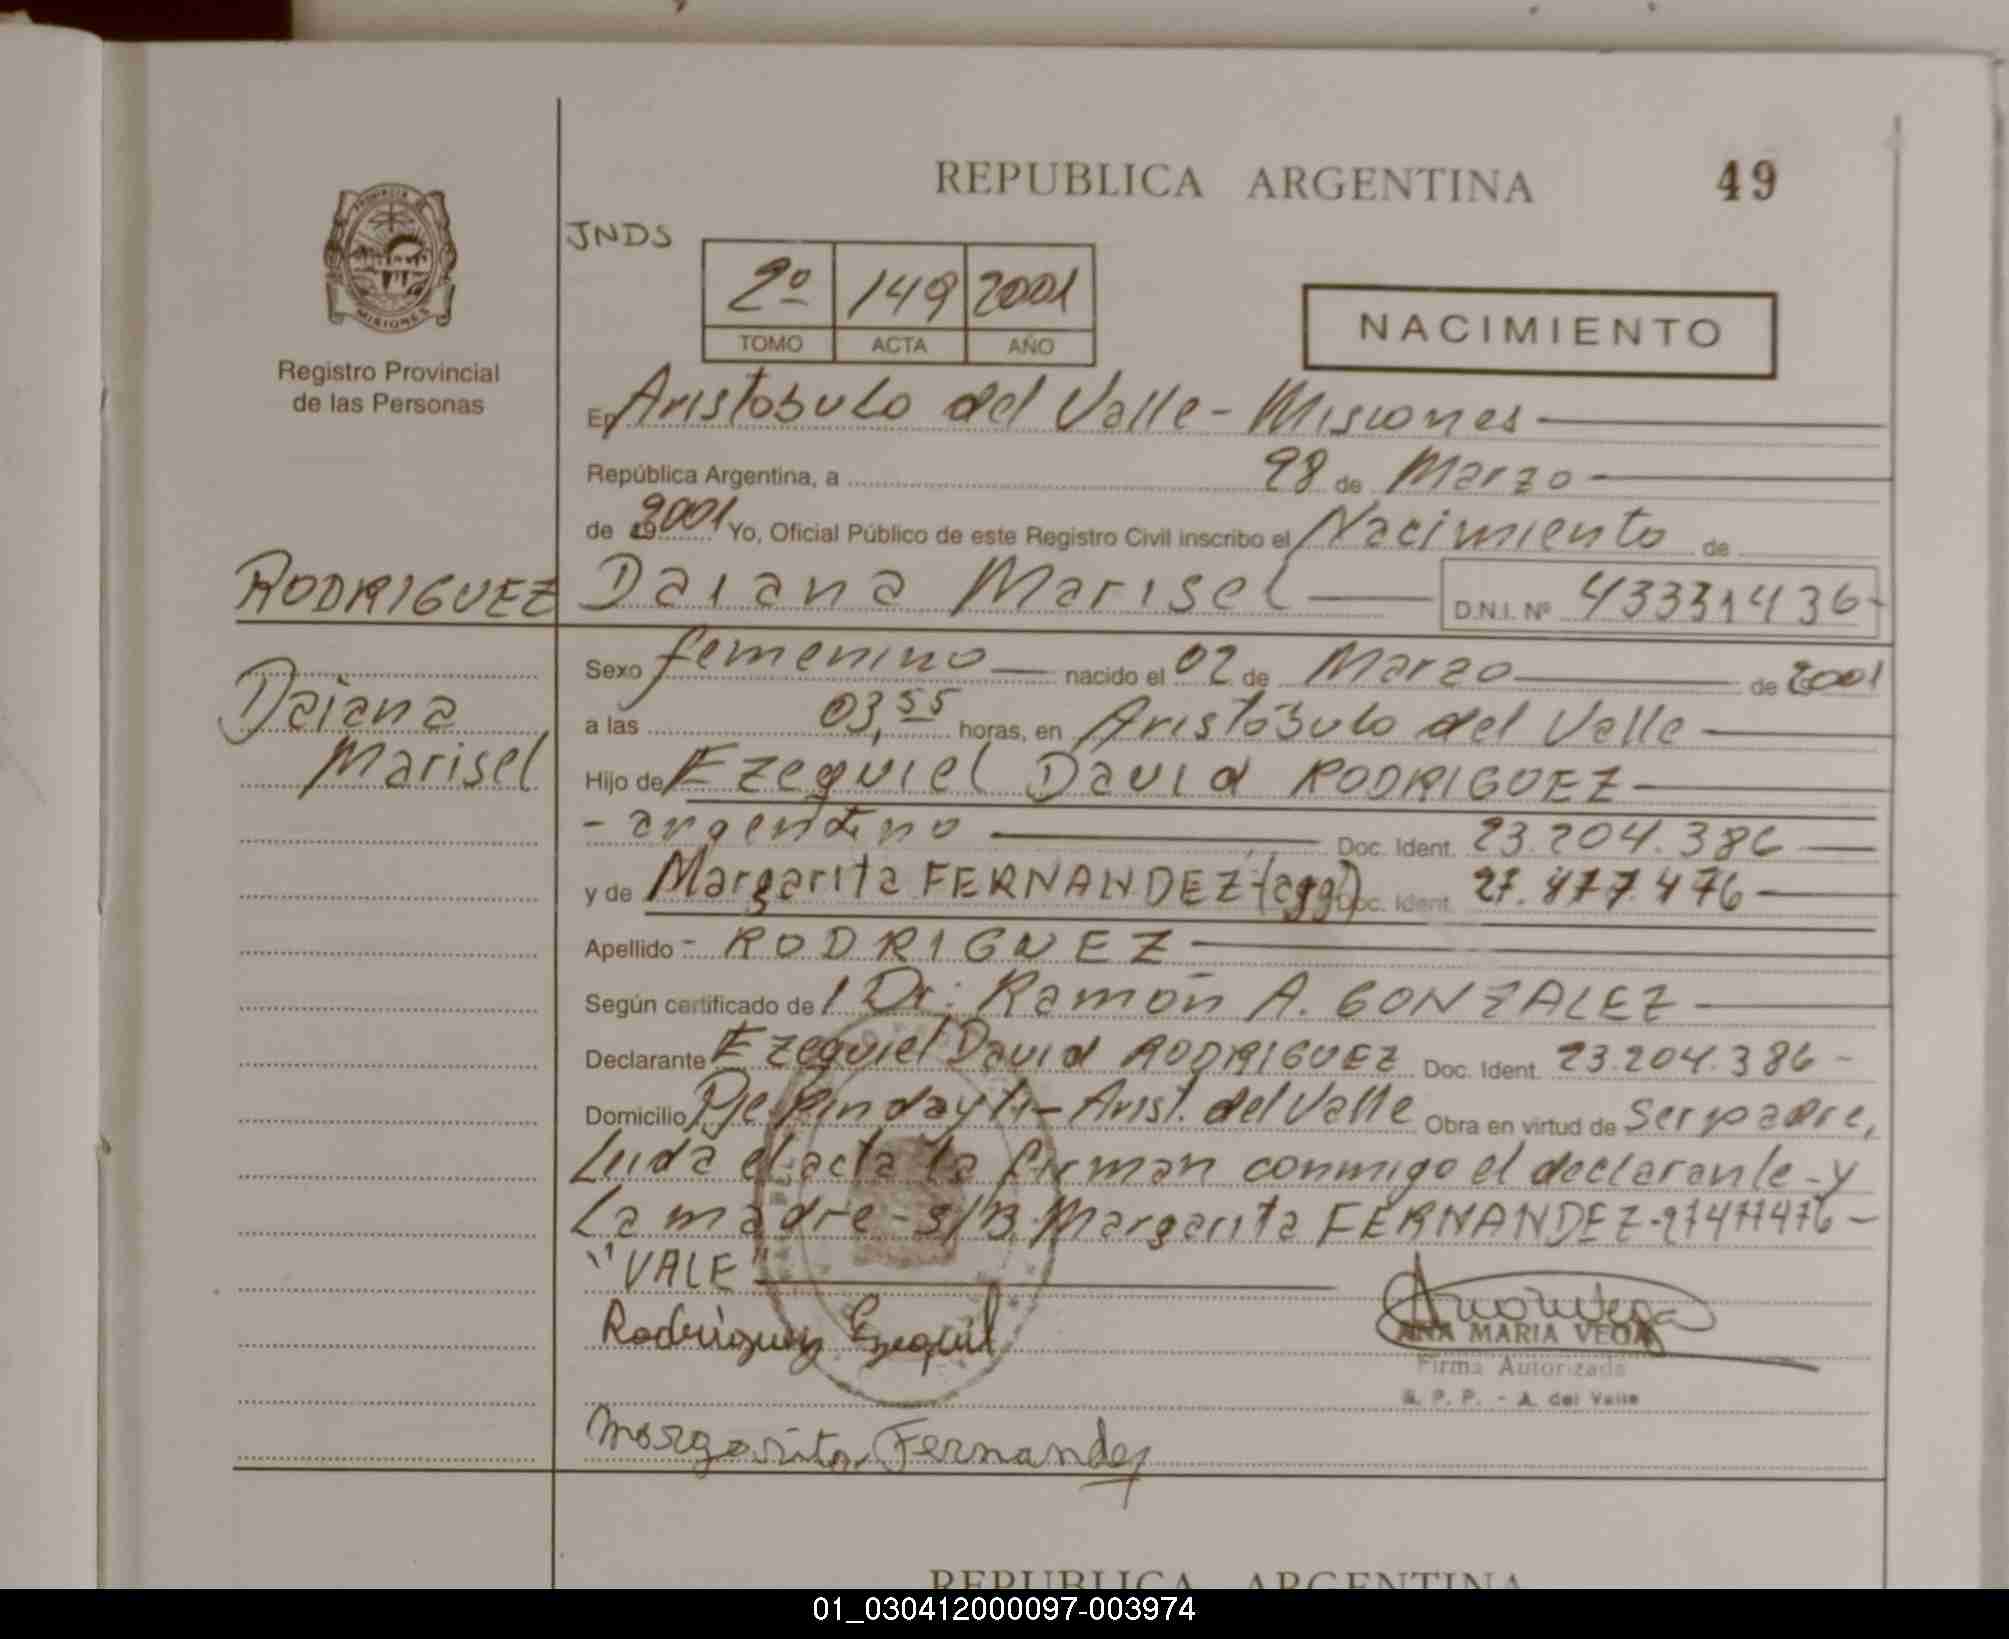 REPUBLICA ARGENTINA
49
PROVINCIA DE
MISIONES
Registro Provincial
de las Personas
JNDS
2º 149 2001
TOMO ACTA AÑO
NACIMIENTO
En Aristobulo del Valle - Misiones
República Argentina, a 28 de Marzo
de 2001 Yo, Oficial Público de este Registro Civil inscribo el Nacimiento de
RODRIGUEZ Daiana Marisel D.N.I. Nº 43331436-
Daiana
Marisel
Sexo femenino nacido el 02 de Marzo de 2001
a las 03,55 horas, en Aristobulo del Valle
Hijo de Ezequiel David RODRIGUEZ
- argentino Doc. Ident. 23.204.386
y de Margarita FERNANDEZ-(agg) Doc. Ident. 27.477.476
Apellido - RODRIGUEZ
Según certificado de Dr. Ramón A. GONZALEZ
Declarante Ezequiel David RODRIGUEZ Doc. Ident. 23.204.386 -
Domicilio Pje Pindayti - Arist. del Valle Obra en virtud de ser padre,
Leida el acta la firman conmigo el declarante - y
La madre - s/B. Margarita FERNANDEZ-27477476 -
"VALE"
Rodriguez Ezequiel
ANA MARIA VEGA
Firma Autorizada
R. P. P. - A. del Valle
Margarita Fernandez
REPUBLICA ARGENTINA
01_030412000097-003974